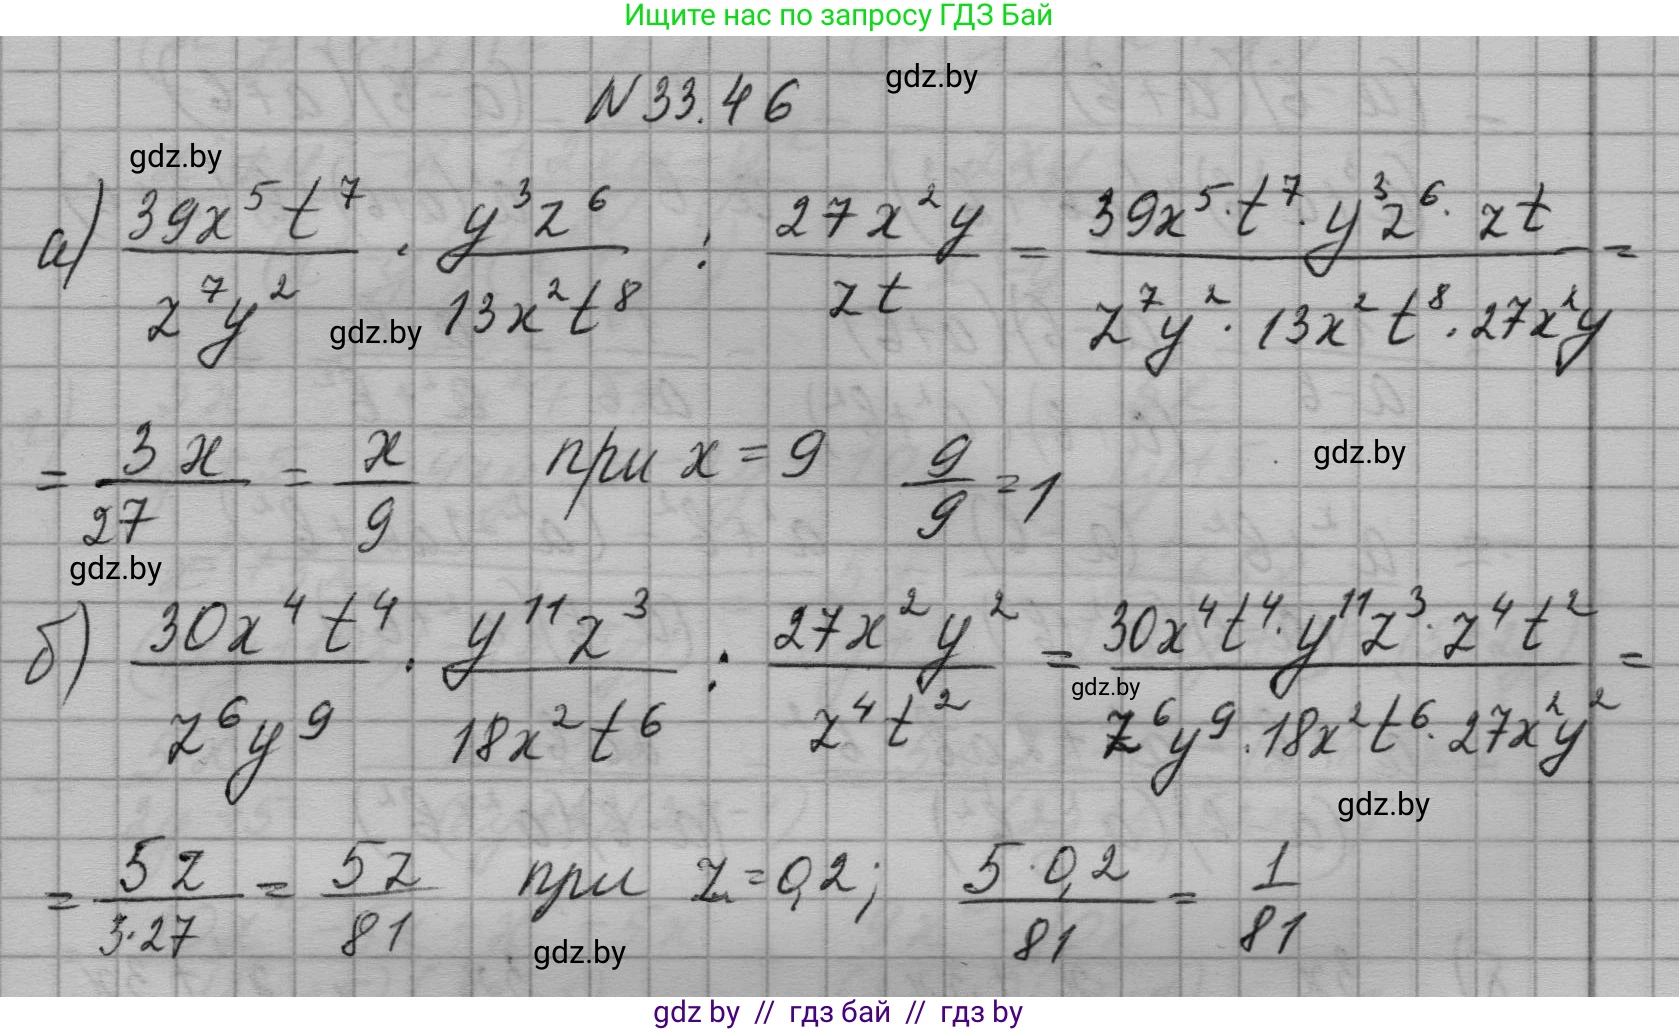 Ищите нас по запросу ГДЗ Бай
gdz.by
N 33.46
gdz.by
а) 39x⁵t⁷/z⁷y² · y³z⁶/13x²t⁸ : 27x²y/zt = 39x⁵·t⁷·y³z⁶·zt/z⁷y²·13x²t⁸·27x²y =
gdz.by
= 3x/27 = x/9 при x = 9 9/9 = 1
gdz.by
gdz.by
б) 30x⁴t⁴/z⁶y⁹ · y¹¹z³/18x²t⁶ : 27x²y²/z⁴t² = 30x⁴t⁴·y¹¹z³·z⁴t²/z⁶y⁹·18x²t⁶·27x²y² =
gdz.by
gdz.by
= 5z/3·27 = 5z/81 при z = 0,2; 5·0,2/81 = 1/81
gdz.by
gdz by // гдз бай // gdz by